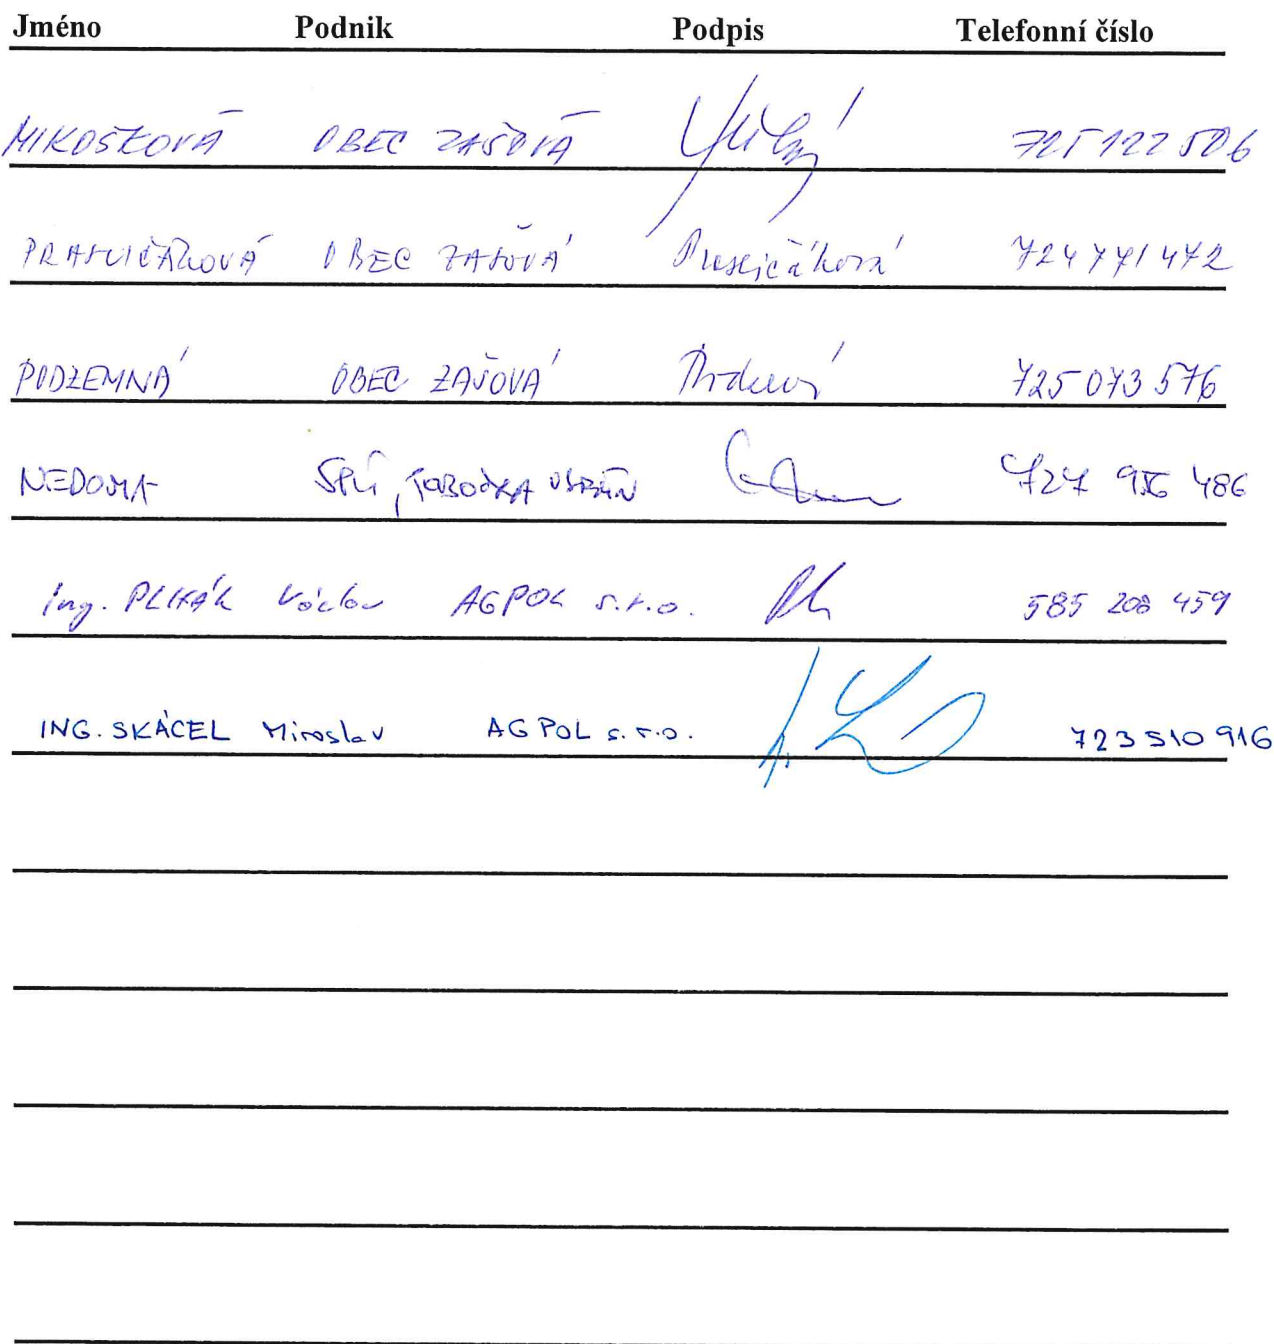 Jméno Podnik Podpis Telefonní číslo
MIKOŠKOVÁ OBEC ZAŠOVÁ 725 122 506
OBEC ZAŠOVÁ 724 771 472
PODZEMNÁ OBEC ZAŠOVÁ 725 073 576
NEDOMA SPÚ, POBOČKA VSETÍN 727 956 486
Ing. Václav AGPOL s.r.o. 585 208 459
ING. SKÁCEL Miroslav AGPOL s.r.o. 723 510 916